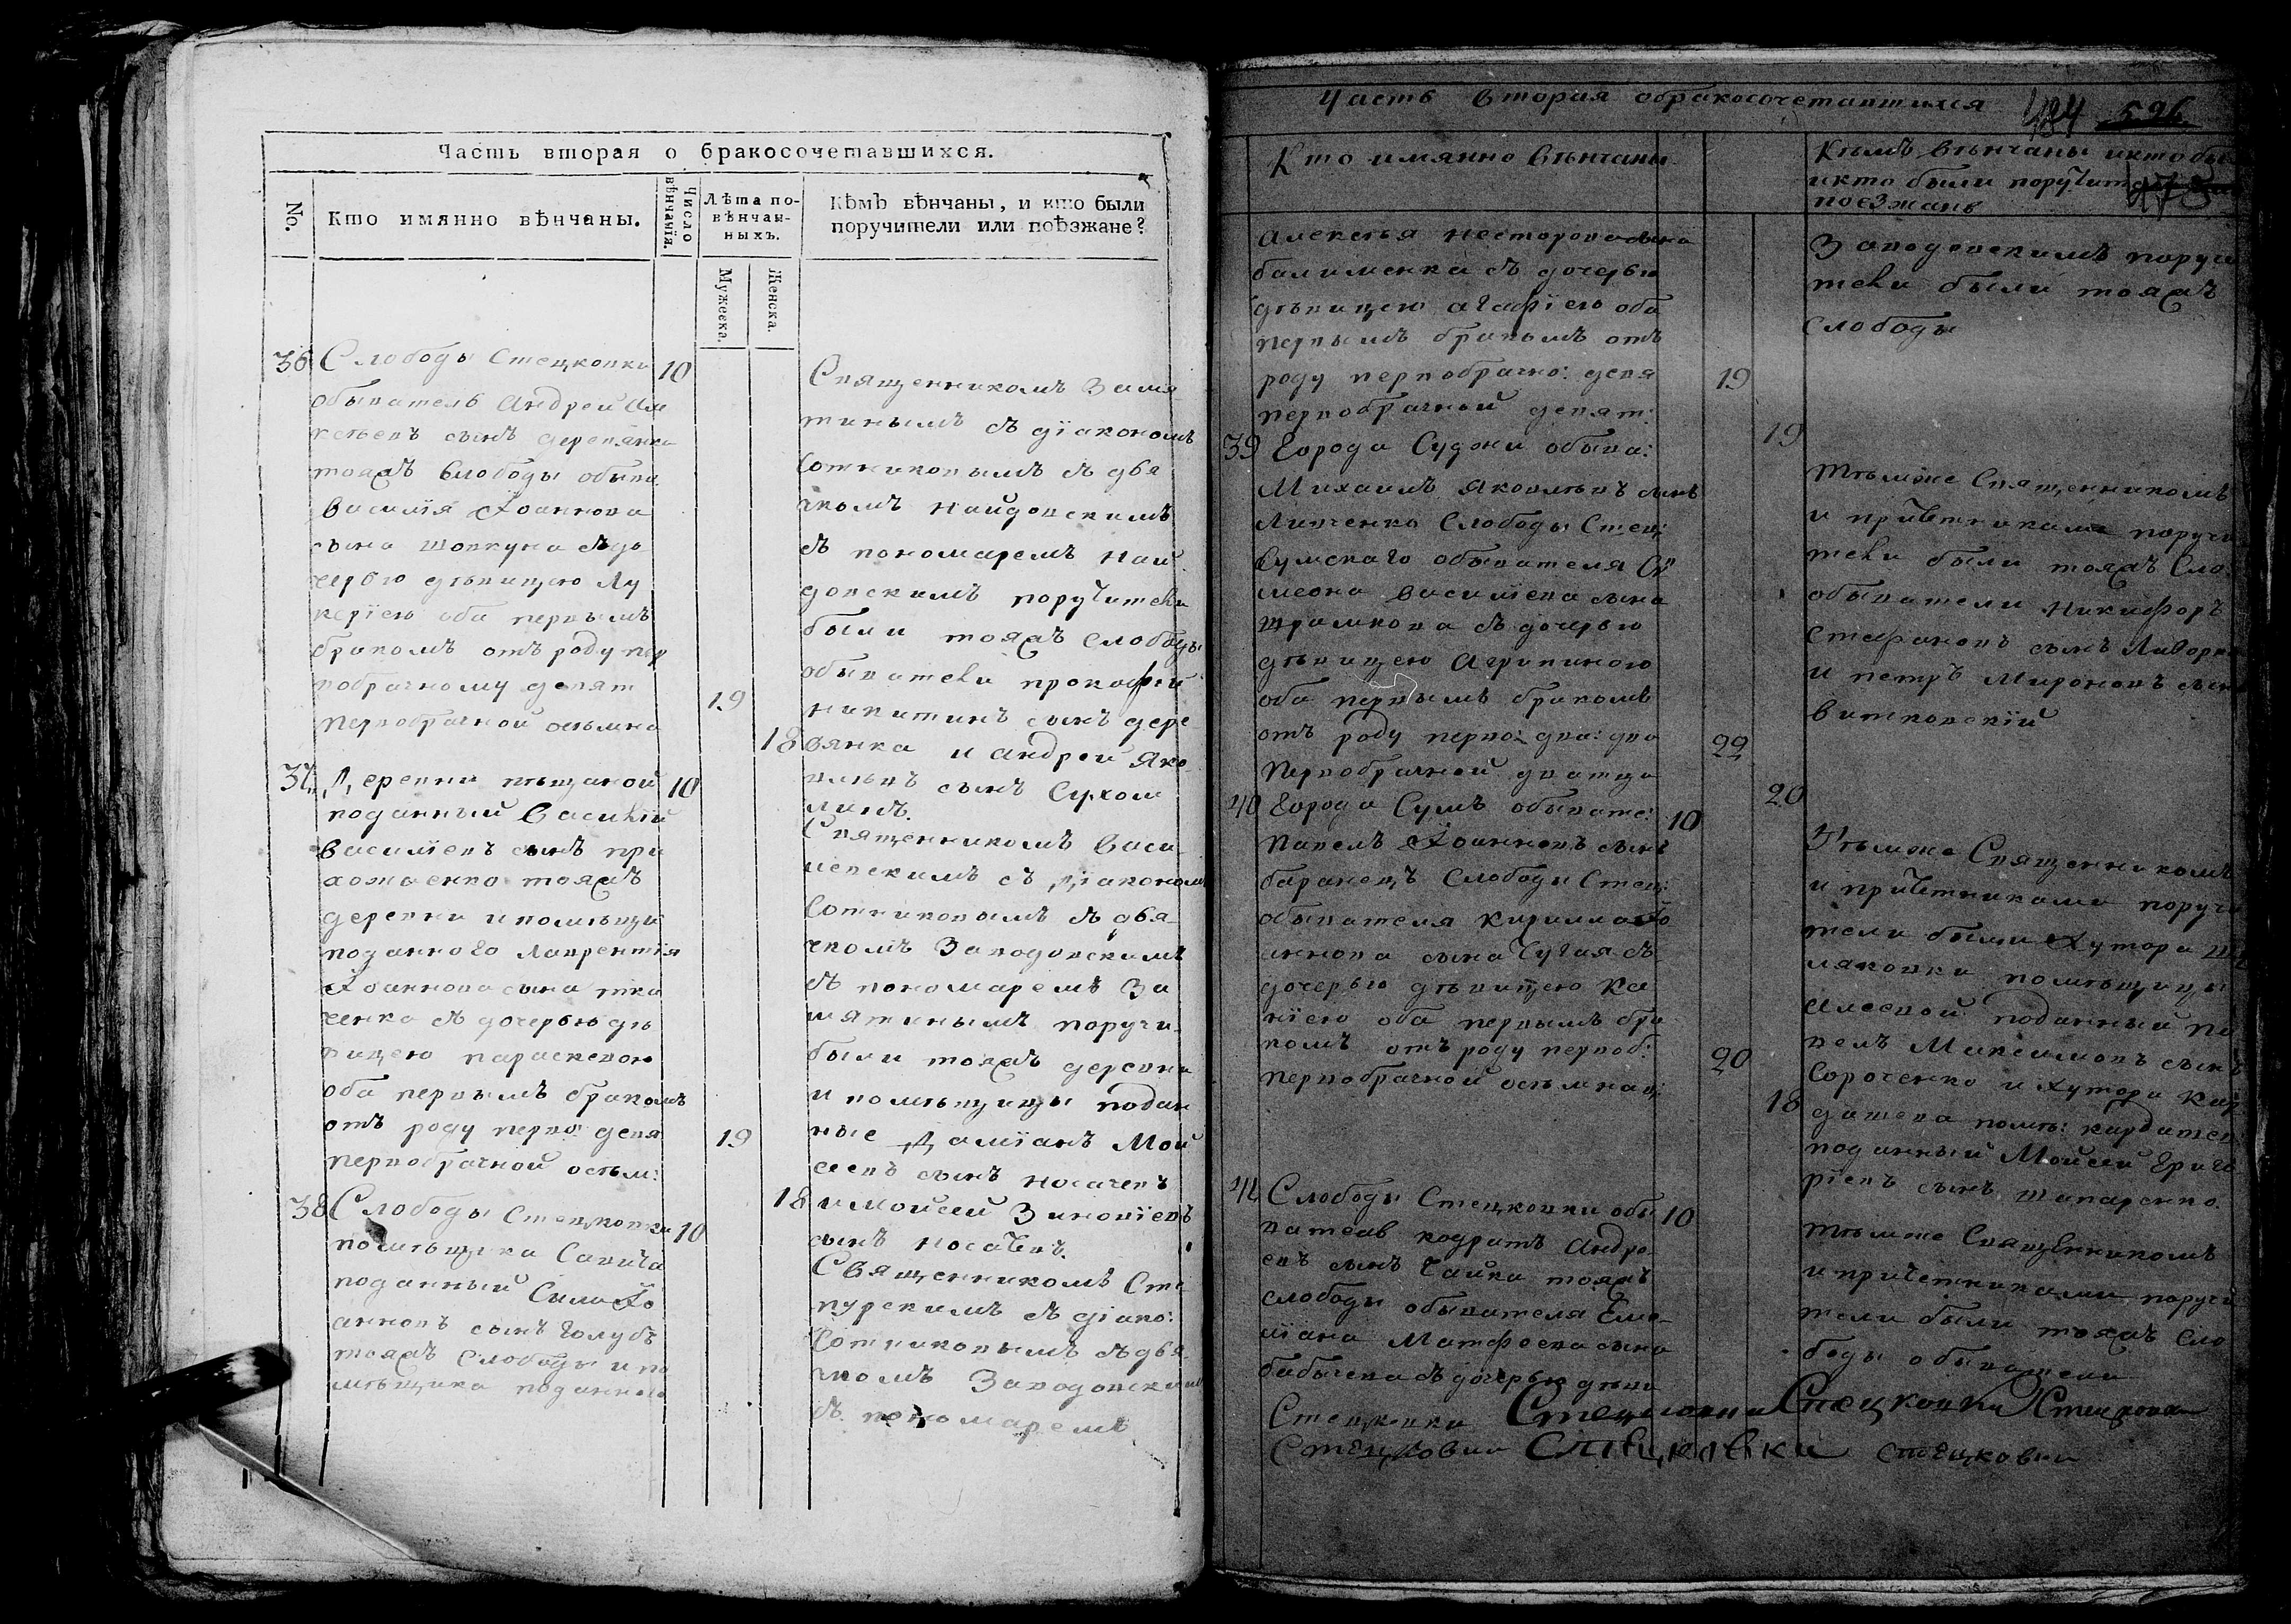 Часть вторая о бракосочетавшихся.
№.
Кто имянно вѣнчаны.
Число вѣнчанія.
Лѣта по-
вѣнчан-
ныхъ.
Мужеска.
Женска.
Кѣмъ вѣнчаны, и кто были
поручители или поѣзжане?
36 Слободы Стецковки 10
обыватель Андрей Але
ксѣевъ сынъ деревянко
тояжъ Слободы обыва
Василїя Іоаннова
сына Шовкуна съ до
черью дѣвицею Лу
керїею оба первымъ
бракомъ отъ роду пер
вобрачному девят 19
первобрачной осьмна 18
Священникомъ Замя
тинымъ съ дїакономъ
Сотниковымъ съ дья
чкомъ Найдовскимъ
съ пономаремъ Най
довскимъ поручители
были тояжъ слободы
обыватели прокофїй
никитинъ сынъ дере
вянко и андрей Яко
влевъ сынъ Сухом
линъ.
37 Деревни пѣщаной 10
поданный Василїй
Василїевъ сынъ при
хоженко тояжъ
деревни и помѣщи
поданного Лаврентїя
Іоаннова сына тка
ченка съ дочерью дѣ
вицею параскевою
оба первымъ бракомъ
отъ роду перво: девя 19
первобрачной осьм: 18
Священникомъ Васи
левскимъ съ дїакономъ
Сотниковымъ съ дья
чкомъ Заводовскимъ
съ пономаремъ За
мятинымъ поручи
были тояжъ деревни
и помѣщицы подан
ные Дамїанъ Мой
сеевъ сынъ носачевъ
и мойсей Зиновїевъ
сынъ носачевъ.
38 Слободы Стецковки 10
помѣщика Савича
поданный Сила Іо
анновъ сынъ голубъ
тояжъ Слободы и по
мѣщика поданного
Священникомъ Сте
пурскимъ съ дїако:
Сотниковымъ съ дья
чкомъ Заводовскимъ
съ пономаремъ
Часть вторая о бракосочетавшихся
484 596
Кто имянно вѣнчаны
Кѣмъ вѣнчаны и кто бы
и кто были поручит
поезжанѣ
алексѣя несторова сына
балименка съ дочерью
дѣвицею агафїею оба
первымъ бракомъ отъ
роду первобрачно: девя 19
первобрачной девят: 19
Заводовскимъ поручи
тели были тояжъ
слободы
39 Города Суджи обыва:
Михаилъ Яковлевъ сынъ
Липченко Слободы Стец:
Сумскаго обывателя Си
меона василїева сына
Шрамкова съ дочерью
дѣвицею Агрипиною
оба первымъ бракомъ
отъ роду перво: два: два 22
первобрачной дватца 20
Тѣмже Священникомъ
и причетниками поручи
тели были тояжъ Сло
обыватели никифоръ
Стефановъ сынъ
и петръ Мироновъ сын
витковскїй
40 Города Сумъ обывате: 10
павелъ Іоанновъ сынъ
баранецъ Слободы Стец:
обывателя Кирилла Іо
аннова сына Чугая съ
дочерью дѣвицею Ка
нїею оба первымъ бра
комъ отъ роду первоб: 20
первобрачной осьмнац: 18
Тѣмже Священникомъ
и причетниками поручи
тели были Хутора
ляковки помѣщицы
поданный па
велъ Максимовъ сынъ
Сороченко и хутора Кар
дашева помѣ: кардашев
поданный Мойсей Григо
рїевъ сынъ Шапаренко.
41 Слободы Стецковки обы 10
ватель кодратъ Андре
евъ сынъ Чайка тояжъ
слободы обывателя Еме
лїана Матфеева сына
бабычева съ дочерью дѣви
тѣмже Священникомъ
и причетниками поручи
тели были тояжъ Сло
боды обыватели
Стецковки Стецковки Стецковки Стецковки
Стецковки Стецковки Стецковки